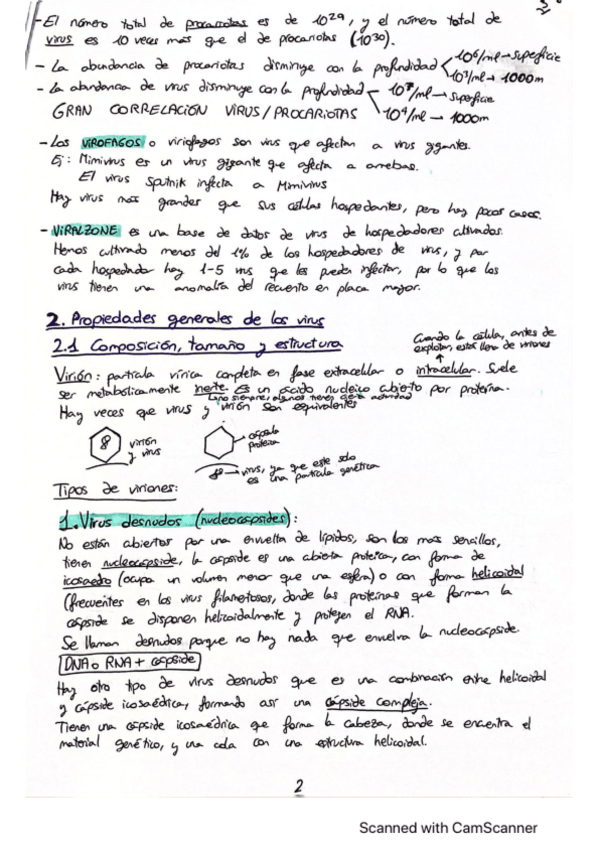 -El número total de procariotas es de 10²⁹, y el número total de
virus es 10 veces más que el de procariotas (10³⁰).
- La abundancia de procariotas disminuye con la profundidad < 10⁶/ml → superficie
10³/ml → 1000m
- La abundancia de virus disminuye con la profundidad < 10⁷/ml → superficie
10⁴/ml → 1000m
GRAN CORRELACIÓN VIRUS/PROCARIOTAS
- Los VIRÓFAGOS o viriófagos son virus que afectan a virus gigantes.
Ej: Mimivirus es un virus gigante que afecta a amebas.
El virus Sputnik infecta a Mimivirus
Hay virus más grandes que sus células hospedantes, pero hay pocos casos.
- VIRALZONE es una base de datos de virus de hospedadores cultivados.
Hemos cultivado menos del 1% de los hospedadores de virus, y por
cada hospedador hay 1-5 virus que les pueden infectar, por lo que los
virus tienen una anomalía del recuento en placa mayor.
2. Propiedades generales de los virus
2.1 Composición, tamaño y estructura
Cuando la célula, antes de
explotar, está llena de viriones
Virión: partícula vírica completa en fase extracelular o intracelular. Suele
ser metabólicamente inerte. Es un ácido nucleico cubierto por proteína.
no siempre, algunos tienen cierta actividad
Hay veces que virus y virión son equivalentes
virión
y virus
cápsula
proteica
virus, ya que este solo
es una partícula genética
Tipos de viriones:
1. Virus desnudos (nucleocápsides):
No están cubiertos por una envuelta de lípidos, son los más sencillos,
tienen nucleocápside, la cápside es una cubierta proteica, con forma de
icosaedro (ocupa un volumen menor que una esfera) o con forma helicoidal
(frecuentes en los virus filamentosos, donde las proteínas que forman la
cápside se disponen helicoidalmente y protegen el RNA.
Se llaman desnudos porque no hay nada que envuelva la nucleocápside.
DNA o RNA + cápside
Hay otro tipo de virus desnudos que es una combinación entre helicoidal
y cápside icosaédrica, formando así una cápside compleja.
Tienen una cápside icosaédrica que forma la cabeza, donde se encuentra el
material genético, y una cola con una estructura helicoidal.
2
Scanned with CamScanner